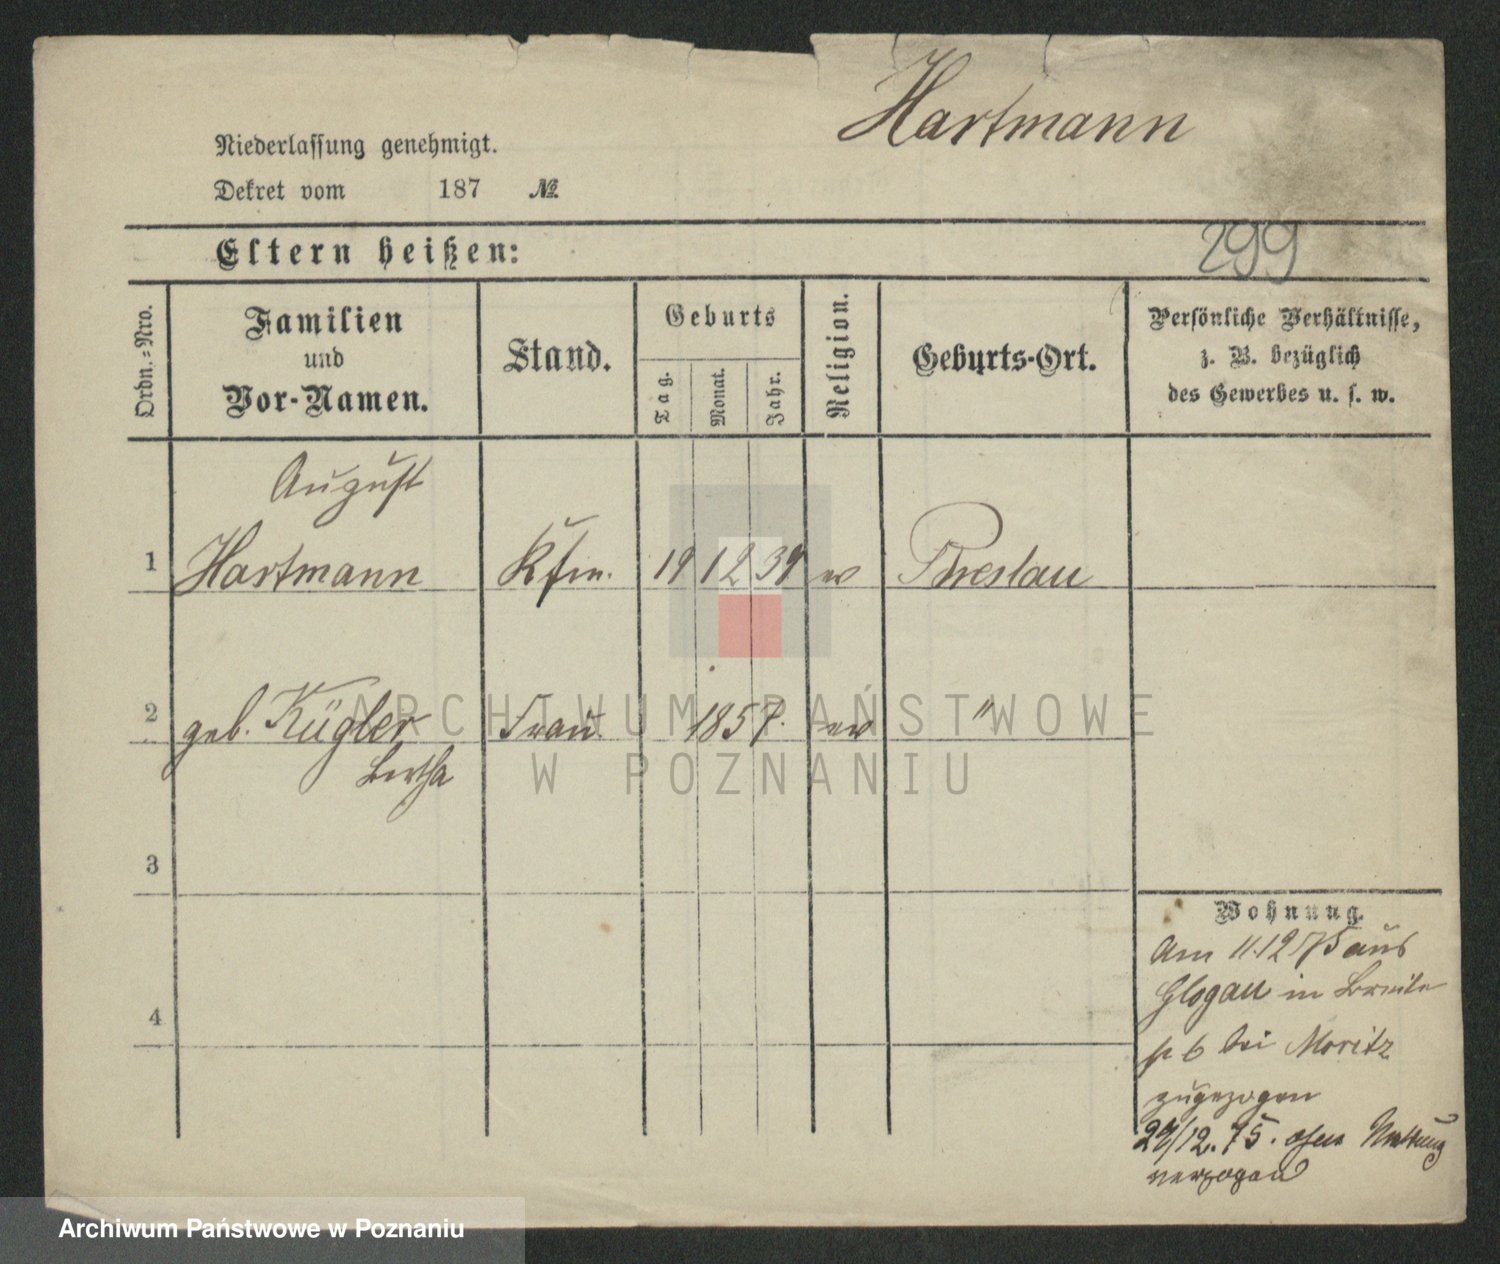 Hartmann
Niederlassung genehmigt.
Dekret vom 187 №
Eltern heißen:
299
Ordn.-Nro.
Familien
und
Vor-Namen.
Stand.
Geburts
Tag.
Monat.
Jahr.
Religion.
Geburts-Ort.
Persönliche Verhältnisse,
z. B. bezüglich
des Gewerbes u. s. w.
August
1 Hartmann Kfm. 19 12 39 ev Breslau
2 geb. Kügler Frau. 1857. ev "
Bertha
3
4
Wohnung.
Am 11.12 75 aus
Glogau in Breite
6 bei Moritz
zugezogen
/12.75. ohne Meldung
verzogen
ARCHIWUM PAŃSTWOWE
W POZNANIU
Archiwum Państwowe w Poznaniu